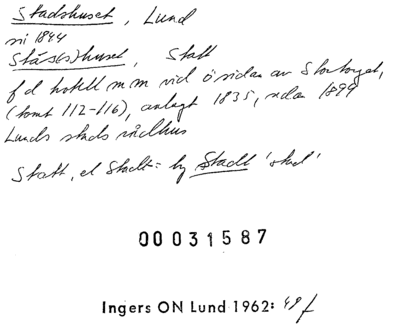 Stadshuset, Lund
si 1844
Stäs(s)huset, Statt
f d hotell m m vid ö sidan av Stortorget,
(tomt 112-116), anlagt 1835, sedan 1899
Lunds stads rådhus
Statt, el Stadt- = ty Stadt 'stad'
00031587
Ingers ON Lund 1962: 49 f